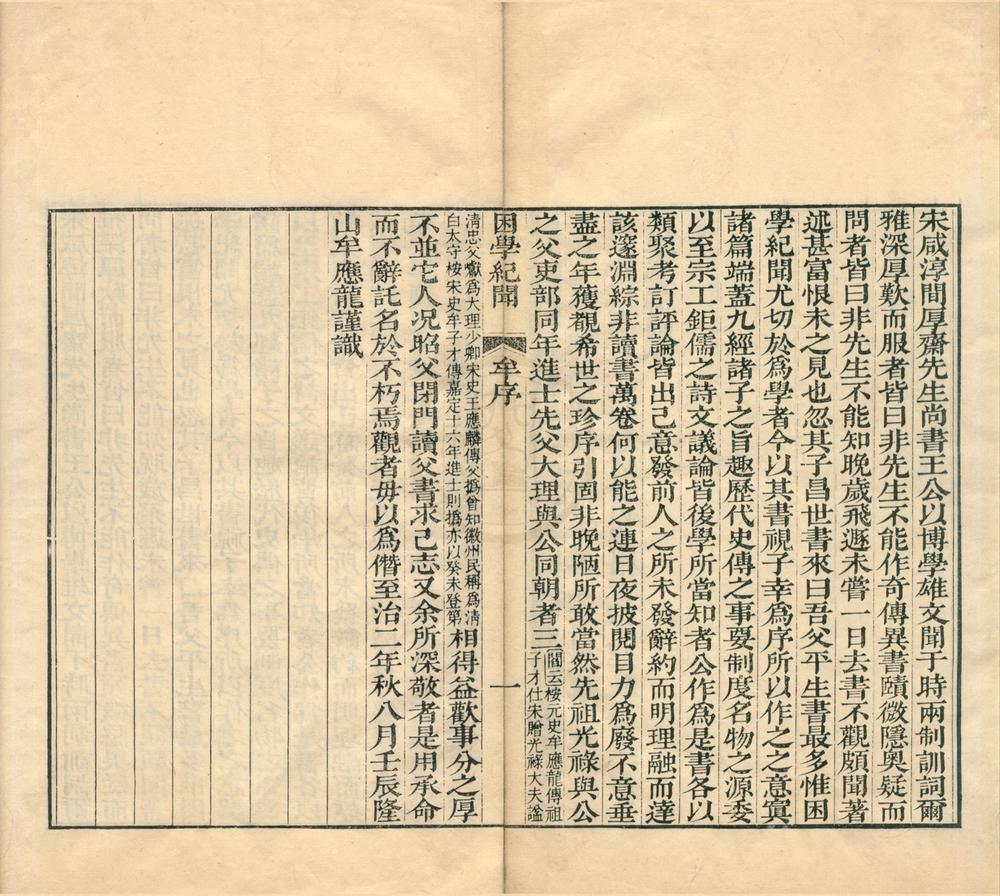 宋咸淳間厚齋先生尚書王公以博學雄文聞于時兩制訓詞爾
雅深厚歎而服者皆曰非先生不能作奇傳異書賾微隱奧疑而
問者皆曰非先生不能知晚歲飛遯未嘗一日去書不觀頗聞著
述甚富恨未之見也忽其子昌世書來曰吾父平生書最多惟困
學紀聞尤切於爲學者今以其書視子幸爲序所以作之之意寘
諸篇端蓋九經諸子之旨趣歷代史傳之事要制度名物之源委
以至宗工鉅儒之詩文議論皆後學所當知者公作爲是書各以
類聚考訂評論皆出己意發前人之所未發辭約而明理融而達
該邃淵綜非讀書萬卷何以能之連日夜披閱目力爲廢不意垂
盡之年獲覩希世之珍序引固非晚陋所敢當然先祖光祿與公
之父吏部同年進士先父大理與公同朝者三閻云桉元史牟應龍傳祖
子才仕宋贈光祿大夫諡
困學紀聞 牟序 一
清忠父巘爲大理少卿宋史王應麟傳父撝曾知徽州民稱爲清
白太守桉宋史牟子才傳嘉定十六年進士則撝亦以癸未登第相得益歡事分之厚
不並它人况昭父閉門讀父書求己志又余所深敬者是用承命
而不辭託名於不朽焉觀者毋以爲僭至治二年秋八月壬辰隆
山牟應龍謹識